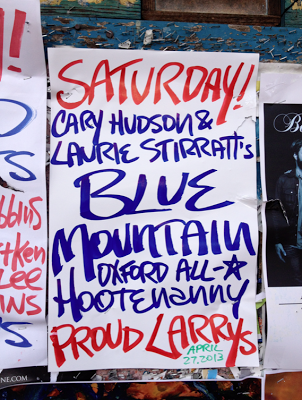 SATURDAY!
CARY HUDSON &
LAURIE STIRRATT's
BLUE
MOUNTAIN
OXFORD ALL-☆
HOOTENANNY
PROUD LARRYs
APRIL
27, 2013
!
s
bbins
tken
Lee
wns
s
NE.COM
B